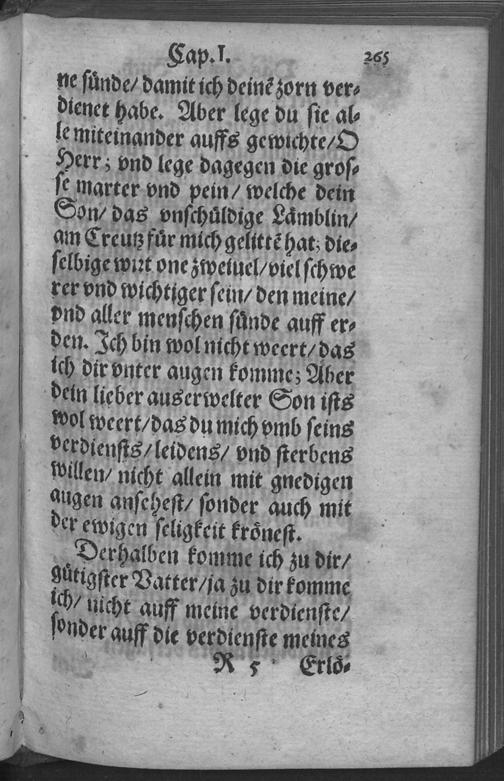 Cap. I. 265
ne sünde/ damit ich deinē zorn ver⸗
dienet habe. Aber lege du sie al⸗
le miteinander auffs gewichte/ O
Herr; vnd lege dagegen die gros⸗
se marter vnd pein/ welche dein
Son/ das vnschüldige Lämblin/
am Creutz für mich gelittē hat; die⸗
selbige wirt one zweiuel/ viel schwe
rer vnd wichtiger sein/ den meine/
vnd aller menschen sünde auff er⸗
den. Ich bin wol nicht weert/ das
ich dir vnter augen komme; Aber
dein lieber auserwelter Son ists
wol weert/ das du mich vmb seins
verdiensts/ leidens/ vnd sterbens
willen/ nicht allein mit gnedigen
augen ansehest/ sonder auch mit
der ewigen seligkeit krönest.
Derhalben komme ich zu dir/
gütigster Vatter/ ja zu dir komme
ich/ nicht auff meine verdienste/
sonder auff die verdienste meines
R 5 Erlö⸗